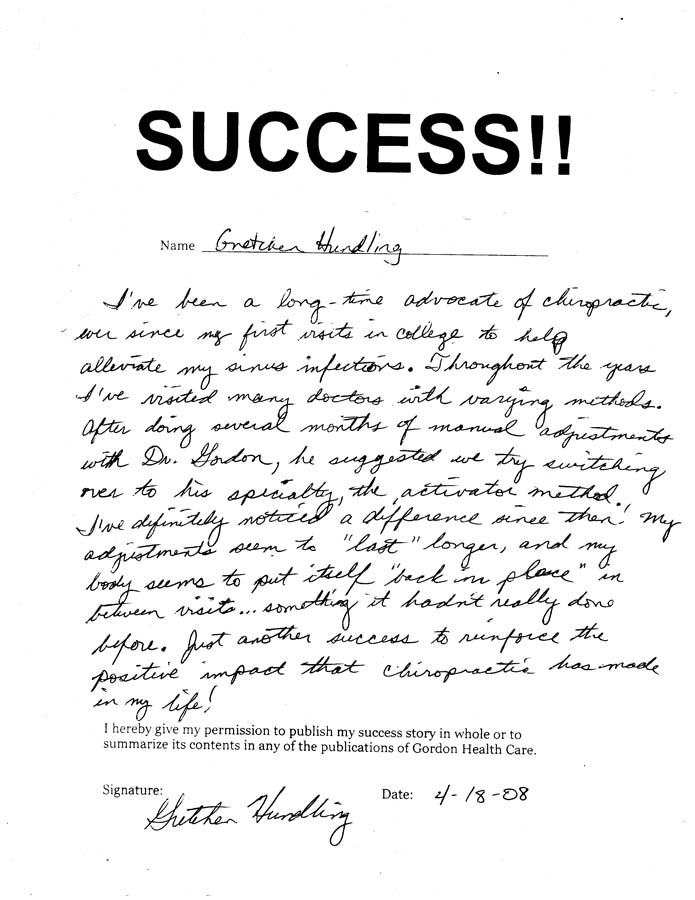 SUCCESS!!
Name Gretchen Hundling
I've been a long-time advocate of chiropractic,
ever since my first visits in college to help
alleviate my sinus infections. Throughout the years
I've visited many doctors with varying methods.
After doing several months of manual adjustments
with Dr. Gordon, he suggested we try switching
over to his specialty, the activator method.
I've definitely noticed a difference since then! My
adjustments seem to "last" longer, and my
body seems to put itself "back in place" in
between visits... something it hadn't really done
before. Just another success to reinforce the
positive impact that chiropractic has made
in my life!
I hereby give my permission to publish my success story in whole or to
summarize its contents in any of the publications of Gordon Health Care.
Signature: Gretchen Hundling Date: 4-18-08